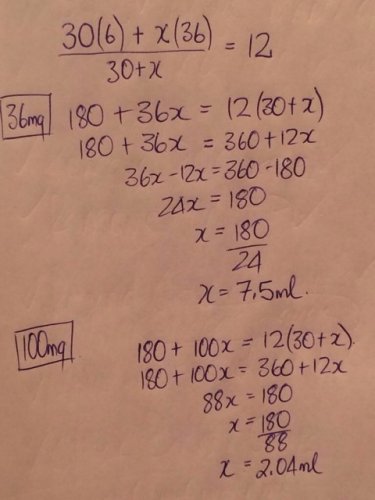 30(6) + x(36)
30+x
= 12
36mg
180 + 36x = 12(30+x)
180 + 36x = 360+12x
36x-12x=360-180
24x = 180
x = 180
24
x = 7.5ml.
100mg
180 + 100x = 12(30+x).
180 + 100x = 360+12x
88x = 180
x = 180
88
x = 2.04ml